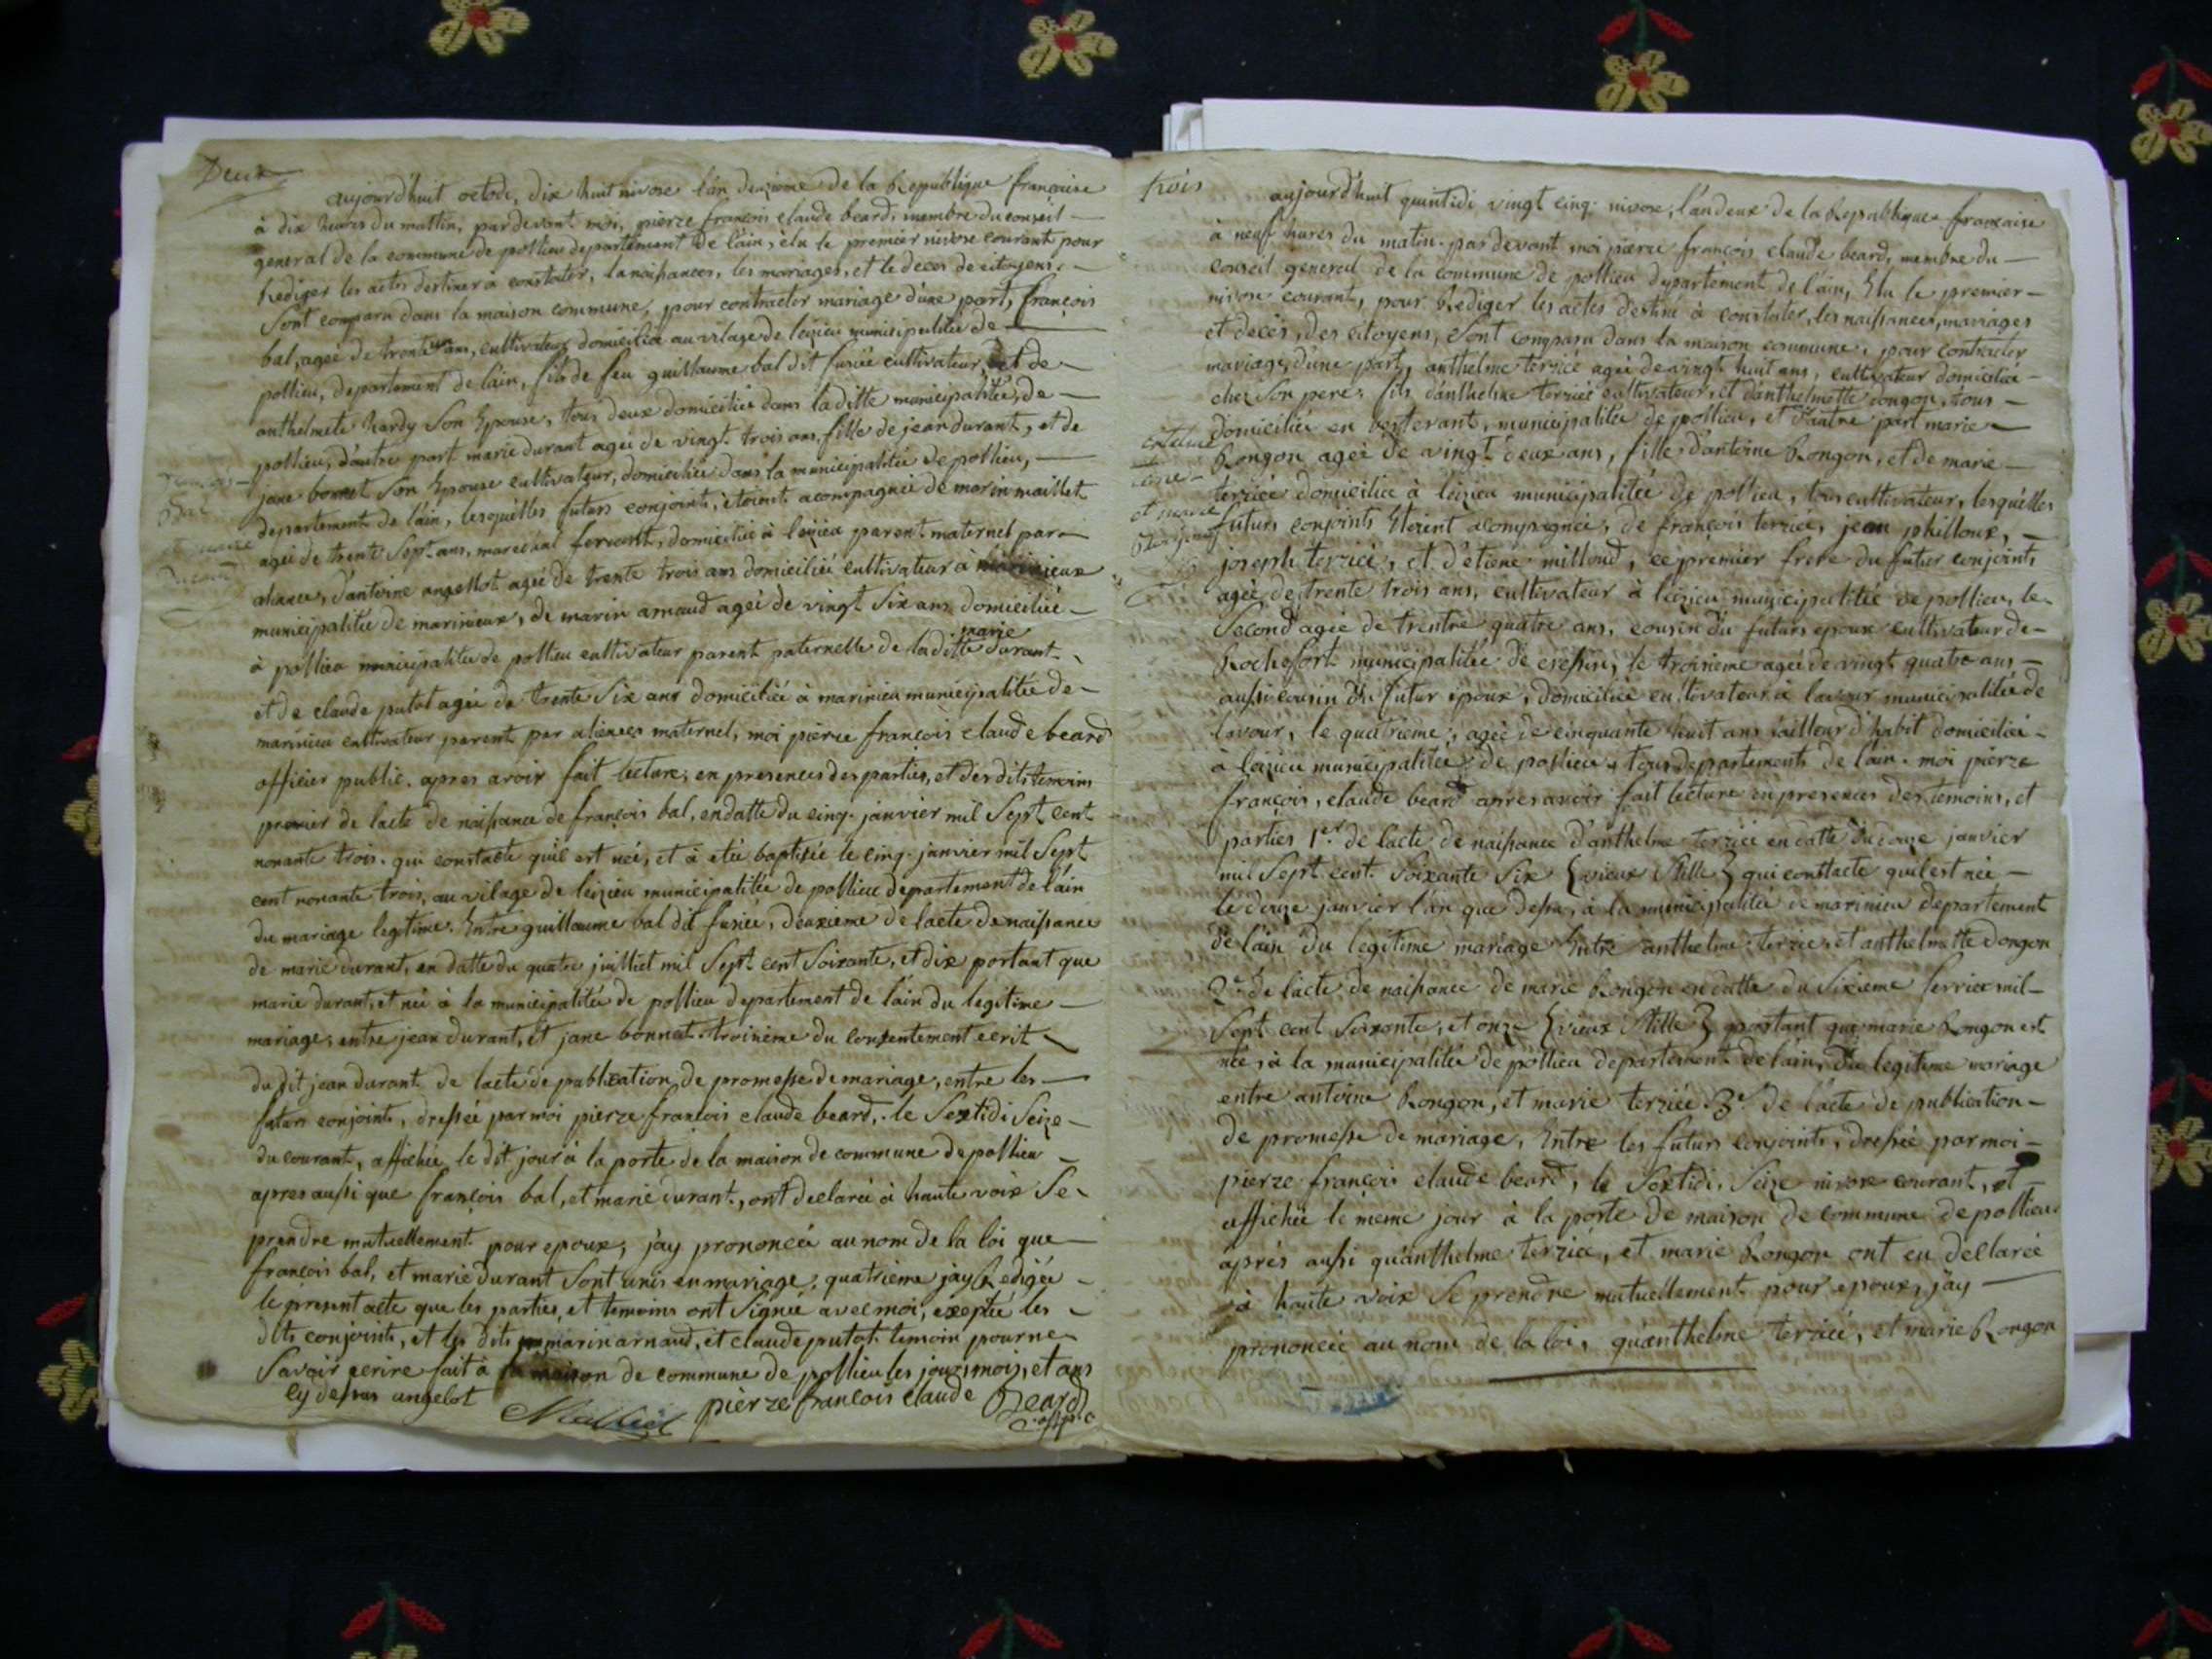 Deux
aujourd'huit octodi, dix huit nivose l'an deuzieme de la Republique francaise
à dix heures du mattin, pardevant moi, pierre francois claude beard, membre du conseil
general de la commune de pollieu departement de l'ain, élu le premier nivose courant pour
Rediger les actes destiner à constater, la naissances, les mariages, et le deces de citoyens,
Sont comparu dans la maison commune, pour contracter mariage d'une part, françois
bal, ageé de trente ans, cultivateur domicilié au vilage de leizieu municipalitée de
pollieu, departement de lain, fils de feu guillaume bal dit fusiée cultivateur, et de
anthelmete hardy Son Epouse, tous deux domicilié dans laditte municipalitée, de
pollieu, d'autre part marie durant ageé de vingt trois ans, fille de jean durant, et de
jane bonnet Son Epouse cultivateur, domiciliée dans la municipalitée de pollieu,
departement de lain, lesquelles futurs conjoints, étoient acompagnée de marin maillet
ageé de trente Sept ans, marechal ferrant, domicilié à leizieu parent maternel par
aliance, d'antoine angellot ageé de trente trois ans domicilié cultivateur à marinieux
municipalitée de marinieux, de marin arnaud ageé de vingt Six ans domicilié
à pollieu municipalitée de pollieu cultivateur parent paternelle de laditte marie durant
et de claude putot ageé de trente Six ans domicilié à marinieu municipalitée de
marinieu cultivateur parent par aliences maternel, moi pierre francois claude beard
officier public. apres avoir fait lecture, en presences des parties, et des dits temoins
premier de lacte de naissance de françois bal, en datte du cinq janvier mil Sept cent
nonante trois. qui constate quil est neé, et à eteé baptiseé le cinq janvier mil Sept
cent nonante trois, au vilage de leizieu municipalitée de pollieu departement de lain
du mariage legitime. Entre guillaume bal dit fusieé, deuxieme de lacte de naissance
de marie durant, en datte du quatre juilliet mil Sept cent Soixante, et dix portant que
marie durant, et neé à la municipalitée de pollieu departement de lain du legitime
mariage, entre jean durant, et jane bonnet. troisieme du consentement ecrit
du dit jean durant de lacte de publication de promesse de mariage, entre les
futurs conjoints, dresseé par moi pierre francois claude beard, le Sextidi Seize
du courant, affichée le dit jour à la porte de la maison de commune de pollieu
apres aussi que françois bal, et marie durant, ont declareé à haute voix Se
prendre mutuellement pour epoux, jay prononceé au nom de la loi que
françois bal, et marie durant Sont unis en mariage, quatrieme jay Redigeé
le present acte que les parties et temoins ont Signeé avec moi, exeptée les
dits conjoints, et les dits marin arnaud, et claude putot temoin pour ne
Savoir ecrire fait à la maison de commune de pollieu les jours mois, et ans
cy dessus angelot
pierre francois claude Beard
trois
aujourd'huit quintidi vingt cinq nivose, l'an deux de la Republique francaise
à neuf hures du matin. par devant moi pierre françois claude beard, membre du
conseil general de la commune de pollieu departement de l'ain, Elu le premier
nivose courant, pour Rediger les actes destiné à constater, les naissances, mariages
et deces, des citoyens, Sont comparu dans la maison commune, pour contracter
mariage, d'une part, anthelme terzieé ageé de vingt huit ans, cultivateur domicilié
chez Son pere, fils d'anthelme terzieé cultivateur, et d'anthelmette dongon, tous
domicilié en, municipalitée de pollieu, et d'autre part marie
Rongon ageé de vingt deux ans, fille d'antoine Rongon, et de marie
terzieé domiciliée à leizieu municipalitée de pollieu, tous cultivateur, lesquelles
et marie
futurs conjoints Etoient acompagneé, de françois terzieé, jean philloux,
joseph terzieé, et d'etiene milloud, ce premier frere du futur conjoint,
ageé de trente trois ans, cultivateur à leizieu municipalitée de pollieu, le
Second ageé de trentre quatre ans, cousin du futurs epoux cultivateur de
Rochefort municipalitée de cressin, le troisieme ageé de vingt quatre ans
aussi cousin du futur époux, domicilié cultivateur à lavour municipalitée de
lavour, le quatrieme, ageé de cinquante huit ans tailleur d'habit domicilié
à leizieu municipalitée de pollieu, tous departements de lain. moi pierre
françois, claude beard apres avoir fait lecture en presences des temoins, et
parties 1er. de lacte de naissance d'anthelme terzieé en datte du douze janvier
mil Sept cent Soixante Six {vieux Stille} qui constacte quil est neé
le douze janvier l'an que dessu, à la municipalitée de marinieu departement
de l'ain du legitime mariage Entre anthelme terzieé, et anthelmette dongon
2e. de lacte de naissance de marie Rongon en datte du Sixieme fevrier mil
Sept cent Soixante, et onze {vieux Stille} portant que marie Rongon est
neé, à la municipalitée de pollieu departement de l'ain, Du legitime mariage
entre antoine Rongon, et marie terzieé. 3e. de l'acte de publication
de promesse de mariage, Entre les futurs conjoints, dresseé par moi
pierre françois claude beard, le Sextidi, Seize nivose courant, et
affichée le meme jour à la porte de maison de commune de pollieu
après aussi qu'anthelme terzieé, et marie Rongon ont eu declareé
à haute voix Se prendre mutuellement pour epoux, jay
prononceé au nom de la loi, qu'anthelme terzieé, et marie Rongon